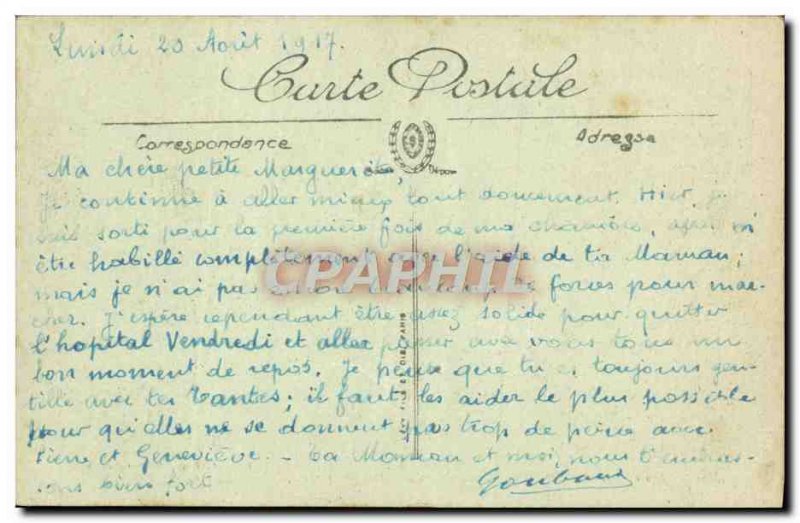 Lundi 20 Août 1917.
Carte Postale
Correspondance
Adresse
Ma chère petite Marguerite,
Je continue à aller mieux tout doucement. Hier, je
suis sorti pour la première fois de ma chambre, après m'
être habillé complètement avec l'aide de ta Maman;
mais je n'ai pas encore de forces pour mar-
cher. J'espère cependant être assez solide pour quitter
l'hopital Vendredi et aller passer avec vous tous un
bon moment de repos. Je pense que tu es toujours gen-
tille avec tes Tantes; il faut les aider le plus possible
pour qu'elles ne se donnent pas trop de peine avec
Pierre et Geneviève. - Ta Maman et moi, nous t'embras-
sons bien fort
CPAPHIL